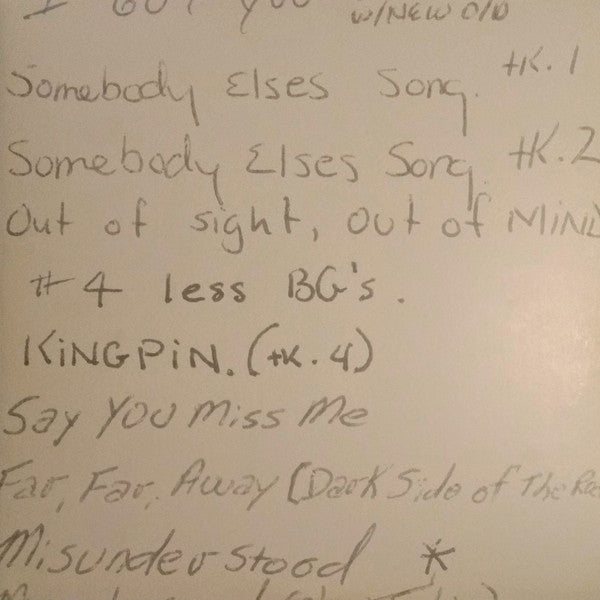 I GOT YOU w/NEW O/D
Somebody Elses Song. tK. 1
Somebody Elses Song tK. 2
Out of sight, out of MIND
#4 less BG's.
KiNGPiN. (tK. 4)
Say You Miss Me
Far, Far, Away (Dark Side of The
Misunderstood *